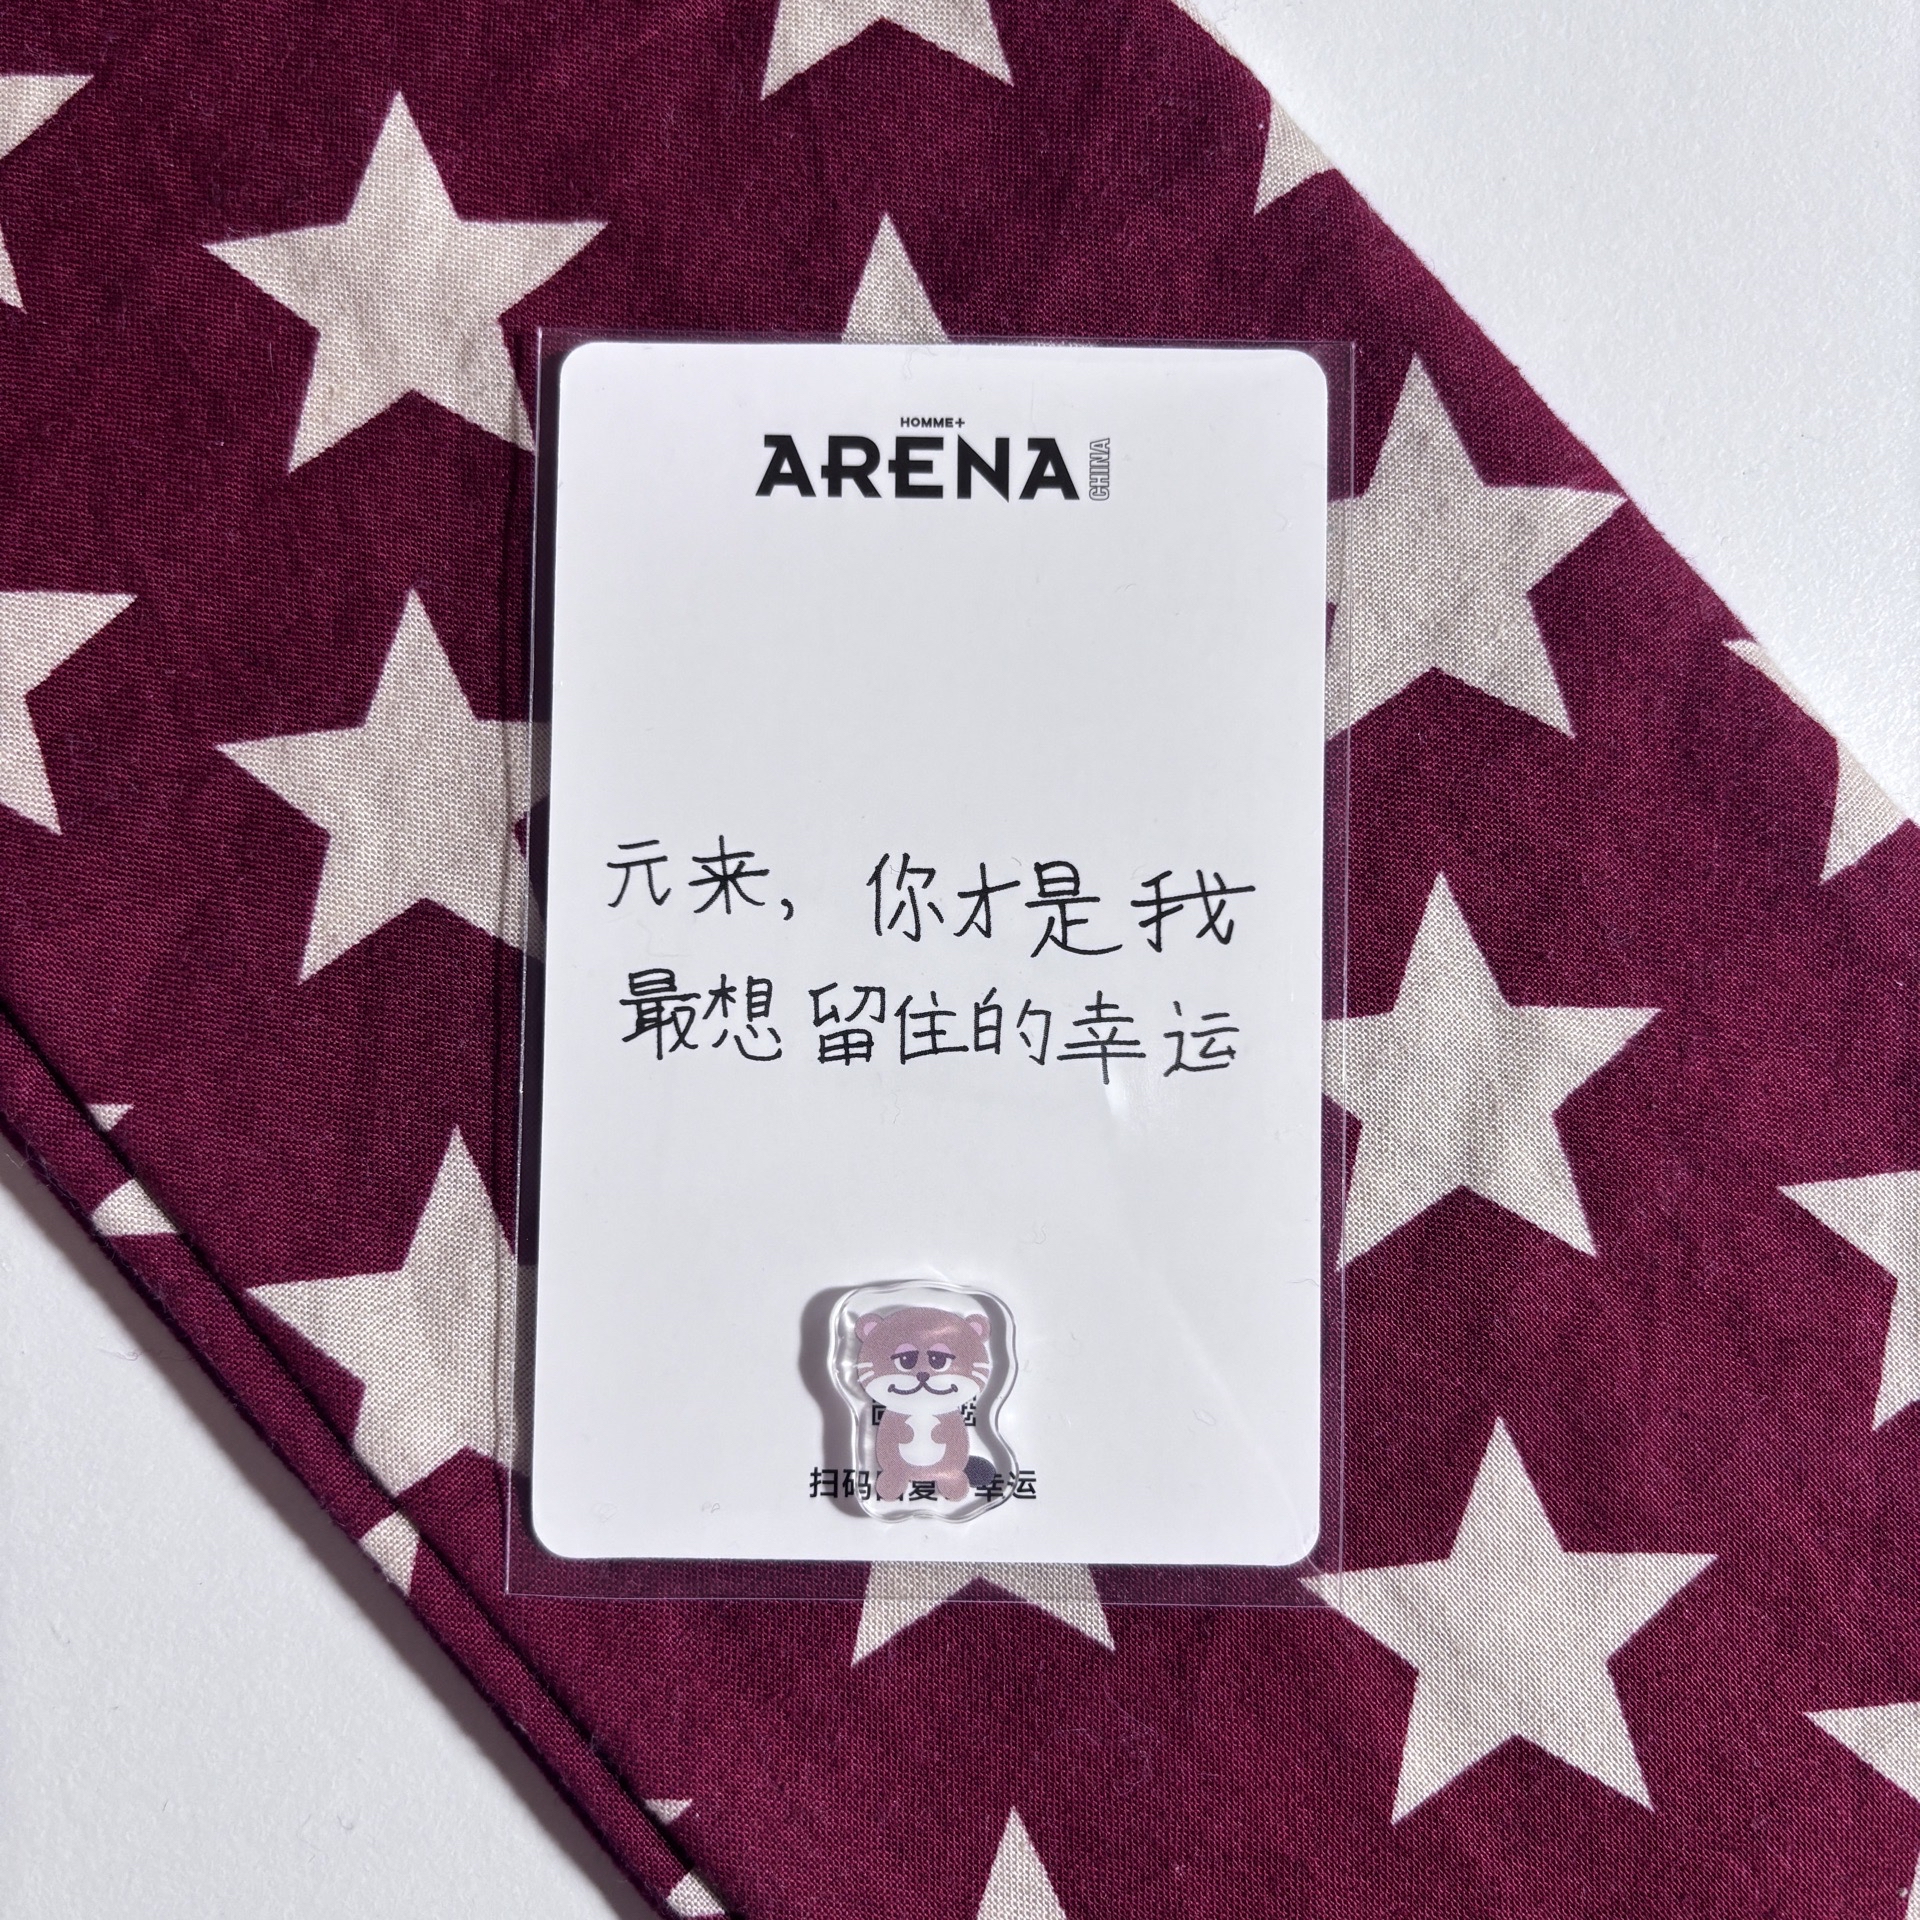 HOMME+
ARENA CHINA
元来，你才是我
最想留住的幸运
扫码 复 幸运